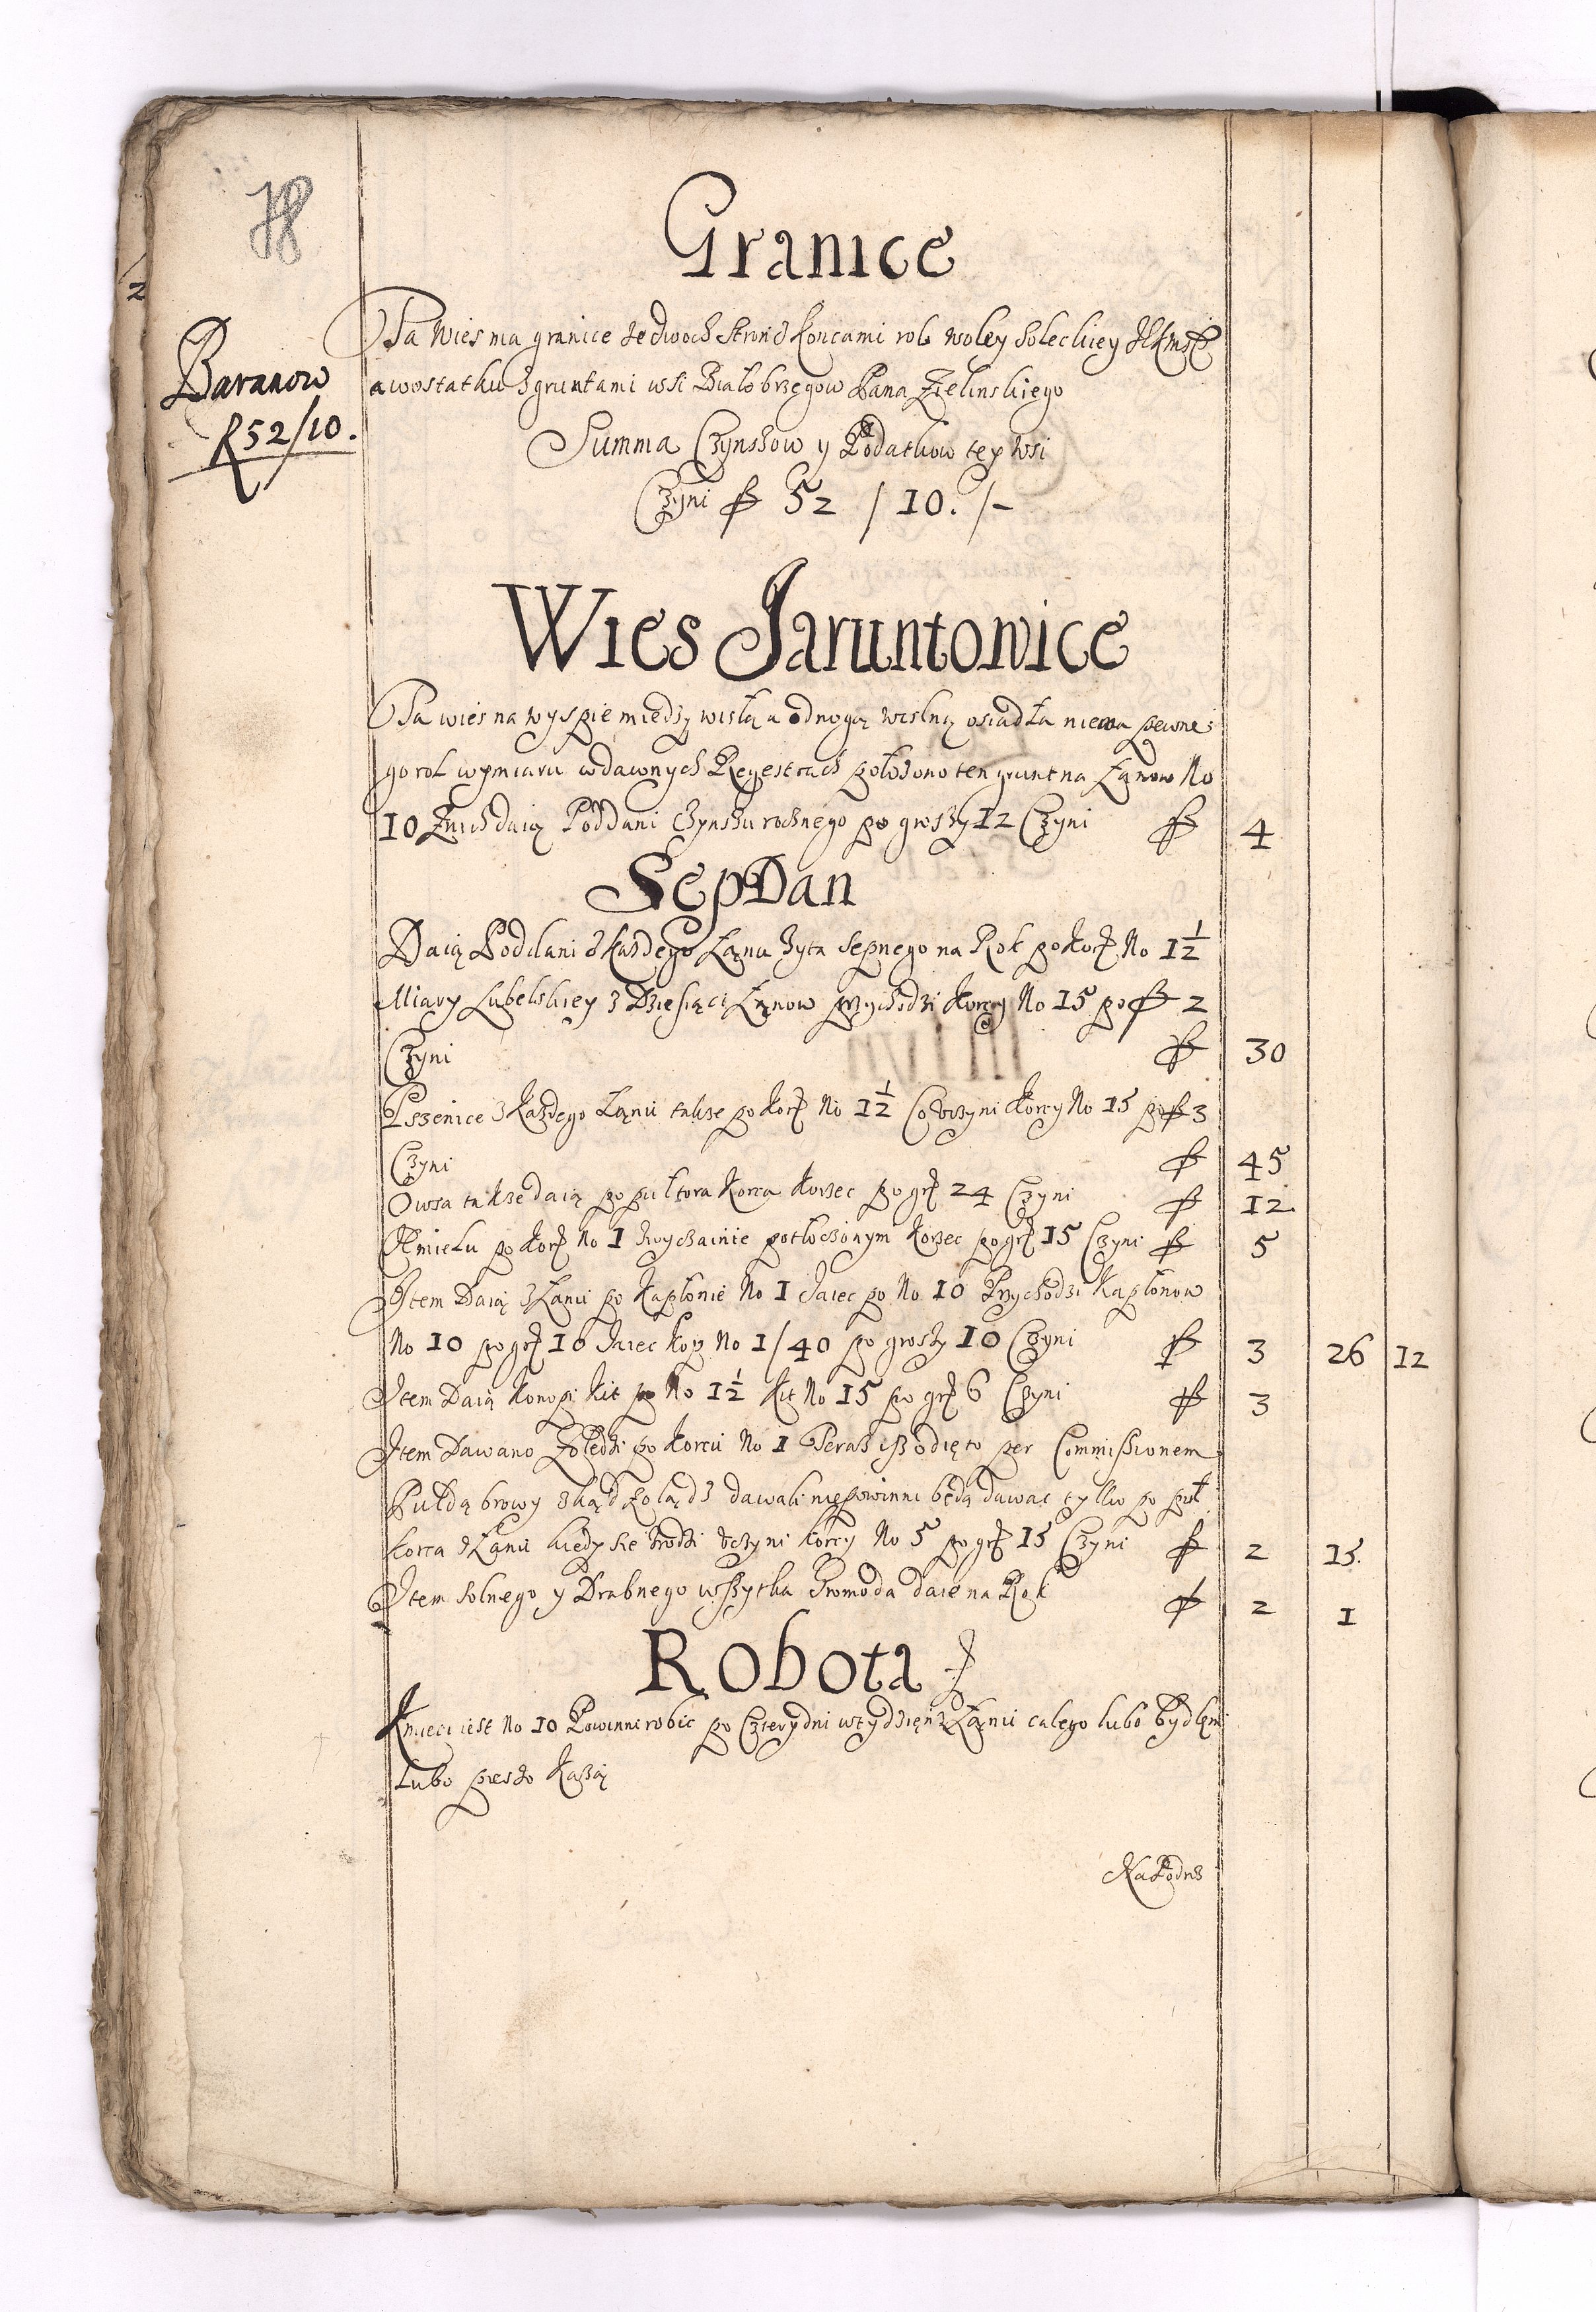 78
Baranow
f 52/10.
Granice
Ta Wies ma granice ze dwoch stron z koncami rol woley Soleckiey
a wostatku z gruntami wsi Białobrzegow Pana Zielinskiego
Summa Czynszow y Podatkow tey wsi
Czyni f 52 / 10. /-
Wies Jaruntowice
Ta wies na wyspie miedzy wisłą a odnogą wislną osiadła niema pewne:
go rol wymiaru w dawnych Regestrach położono ten grunt na Łanow No
10 Z nich daią Poddani Czynszu rocznego po groszy 12 Czyni f 4
Sep Dan
Daią Poddani z każdego Łanu żyta sepnego na Rok po korz No 1 1/2
Miary Lubelskiey z Dziesiąci Łanow przychodzi korcy No 15 po f 2
Czyni f 30
Pszenice z Każdego Łanu takze po korz No 1 1/2 Co uczyni Korcy No 15 po f 3
Czyni f 45
Owsa takze daią po pułtora Korca Korzec po grz 24 Czyni f 12.
Chmielu po Korz No 1 zwyczainie potłoczonym Korzec po grz 15 Czyni f 5
Item Daią z Łanu po Kapłonie No 1 Jaiec po No 10 Przychodzi Kapłonow
No 10 po grz 10 Jaiec Kop No 1/40 po groszy 10 Czyni f 3 26 12
Item Daią Konopi Kit po No 1 1/2 Kit No 15 po grz 6 Czyni f 3
Item Dawano Zołędzi po Korcu No 1 Teraz iż odięto per Commissionem
Pułdąbrowy zkąd Zolądz dawali niepowinni będą dawac tylko po puł
korca z Łanu kiedy sie zrodzi uczyni korcy No 5 po grz 15 Czyni f 2 15.
Item solnego y Drabnego wszytka Gromoda daie na Rok f 2 1
Robota
Kmieci iest No 10 Powinni robic po Cztery dni w tydzień z Łanu całego lubo bydłem
Lubo pieszo Każą